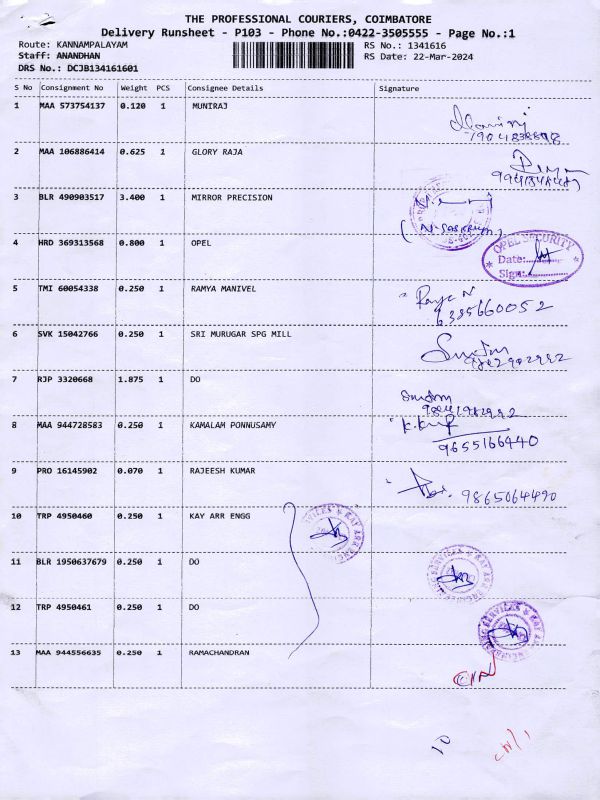 THE PROFESSIONAL COURIERS, COIMBATORE
Delivery Runsheet - P103 - Phone No.:0422-3505555 - Page No.:1
Route: KANNAMPALAYAM
Staff: ANANDHAN
DRS No.: DCJB134161601
RS No.: 1341616
RS Date: 22-Mar-2024
S No Consignment No Weight PCS Consignee Details Signature
1 MAA 573754137 0.120 1 MUNIRAJ
2 MAA 106886414 0.625 1 GLORY RAJA
3 BLR 490903517 3.400 1 MIRROR PRECISION
4 HRD 369313568 0.800 1 OPEL
OPEL SECURITY
Date:
Sign:
5 TMI 60054338 0.250 1 RAMYA MANIVEL
6385660052
6 SVK 15042766 0.250 1 SRI MURUGAR SPG MILL
7 RJP 3320668 1.875 1 DO
8 MAA 944728583 0.250 1 KAMALAM PONNUSAMY
9655166440
9 PRO 16145902 0.070 1 RAJEESH KUMAR
9865064490
10 TRP 4950460 0.250 1 KAY ARR ENGG
11 BLR 1950637679 0.250 1 DO
12 TRP 4950461 0.250 1 DO
13 MAA 944556635 0.250 1 RAMACHANDRAN
10